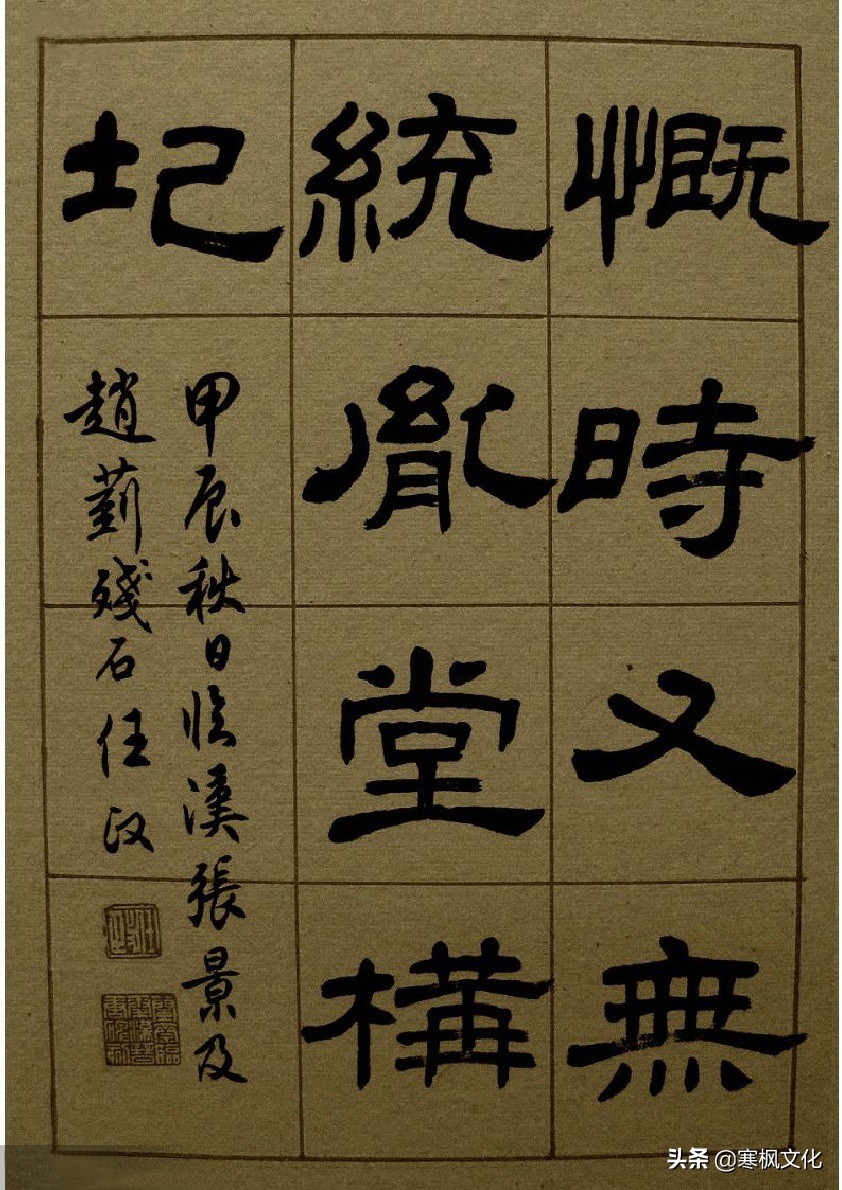 慨時又無
統胤堂構
圮
甲辰秋日临漢張景及
趙菿殘石任政
头条 @寒枫文化